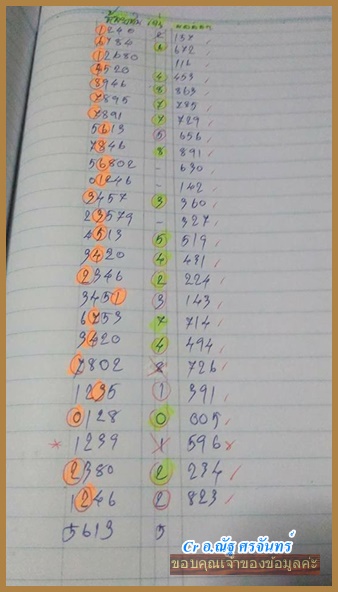 1240 2 137
6784 6 672
12680 116
4520 4 453
8946 8 863
7895 7 785
7891 7 729
5613 5 656
7846 8 891
56802 - 630
01246 - 142
3457 3 360
23579 - 327
4513 5 519
3420 4 431
2346 2 224
3451 3 143
6753 7 714
3420 4 494
7802 726
1235 1 391
0128 0 005
1239 1 596
2380 2 234
1246 2 823
5613 5
Cr อ.ณัฐ ศรจันทร์
ขอบคุณเจ้าของข้อมูลค่ะ